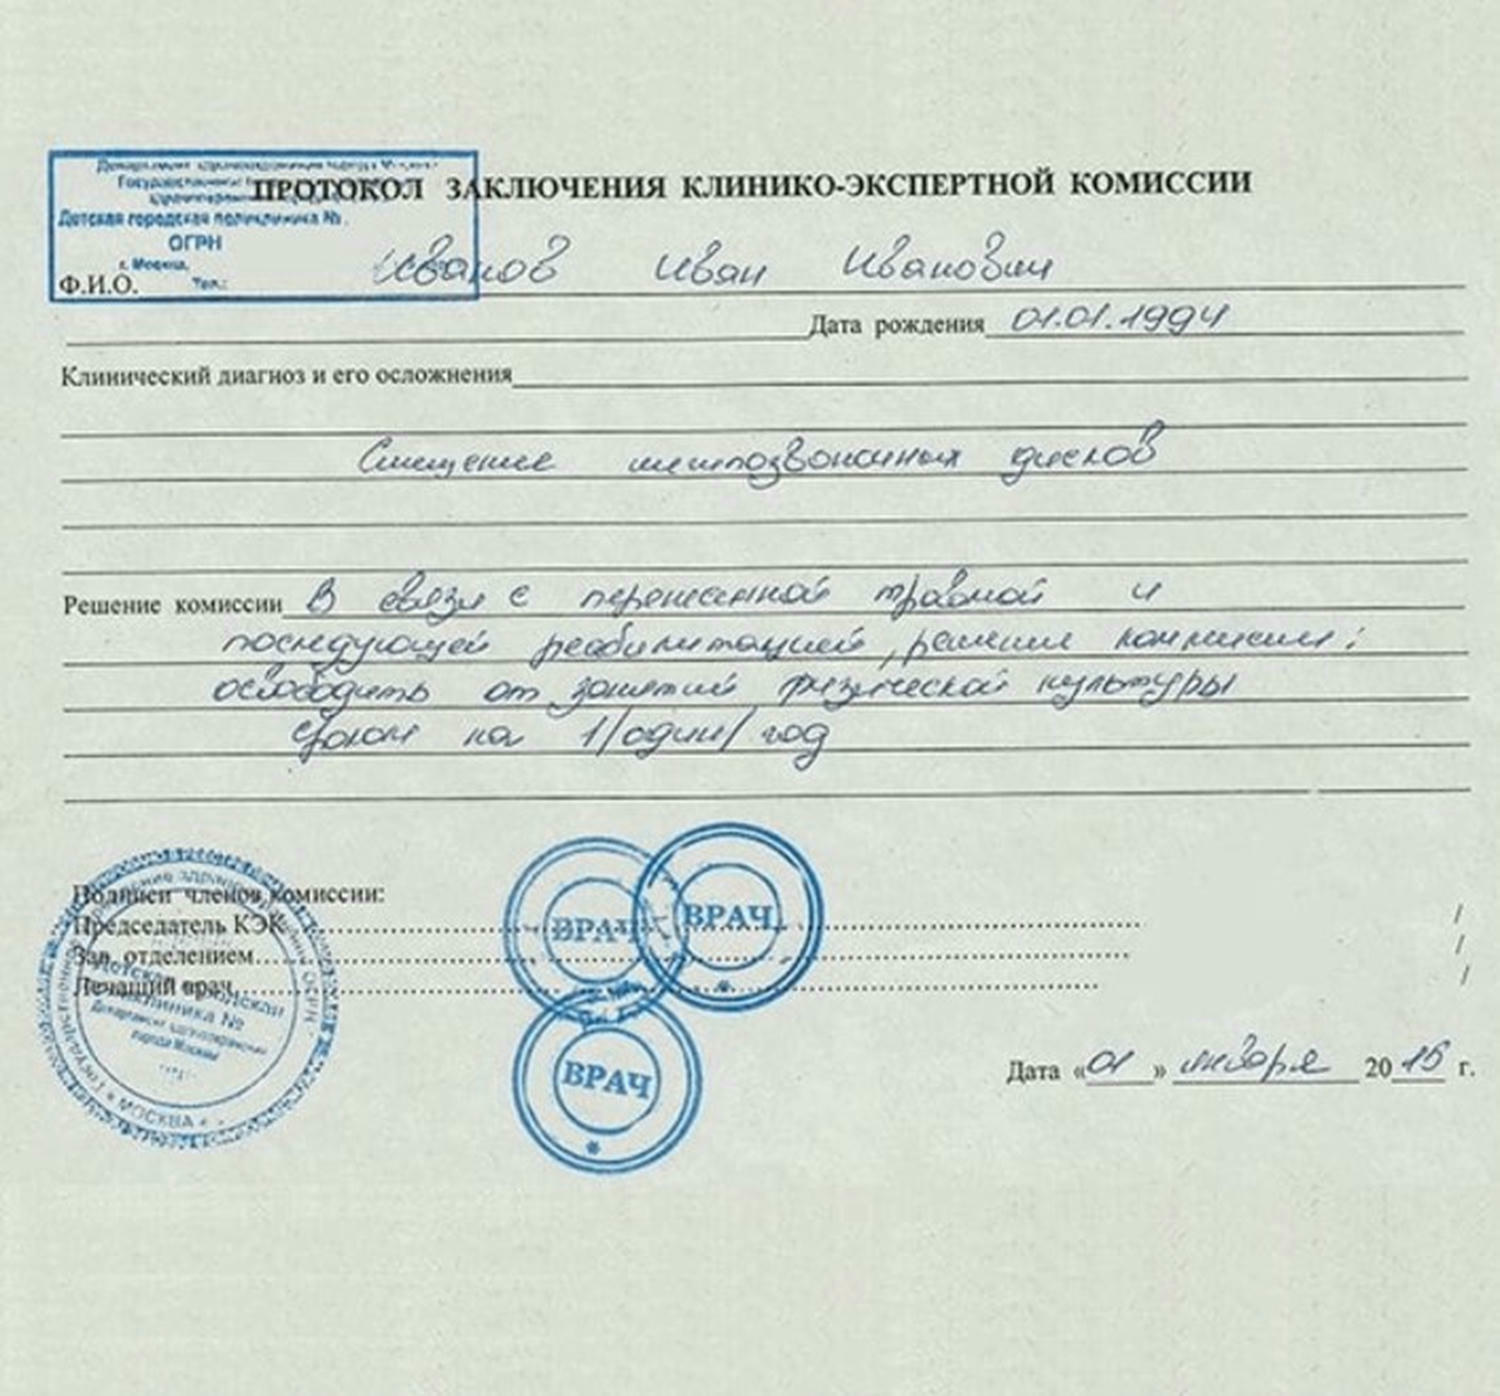 Государственное
ПРОТОКОЛ ЗАКЛЮЧЕНИЯ КЛИНИКО-ЭКСПЕРТНОЙ КОМИССИИ
Детская городская поликлиника №
ОГРН
г. Москва,
Тел.:
Ф.И.О. Иванов Иван Иванович
Дата рождения 01.01.1994
Клинический диагноз и его осложнения
Смещение межпозвоночных дисков
Решение комиссии В связи с перенесенной травмой и
последующей реабилитацией, решение комиссии:
освободить от занятий физической культуры
сроком на 1/один/ год
Подписи членов комиссии:
Председатель КЭК
Зав. отделением
Лечащий врач
ВРАЧ
ВРАЧ
ВРАЧ
Детская городская
поликлиника №
Департамент здравоохранения
города Москвы
МОСКВА
ОГРН
/
/
/
Дата «01» января 2015 г.